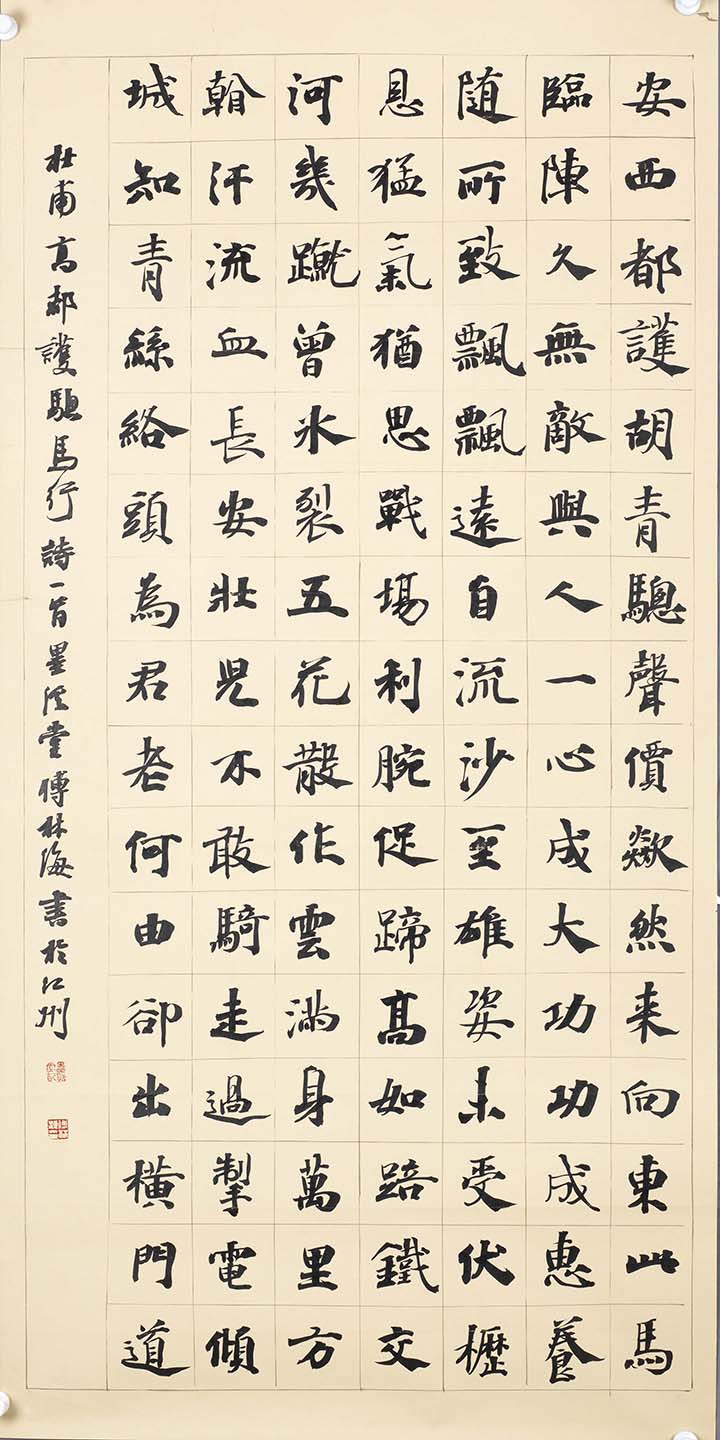 安西都護胡青驄聲價歘然来向東此馬
臨陳久無敵與人一心成大功功成惠養
随所致飄飄遠自流沙至雄姿未受伏櫪
恩猛氣猶思戰場利腕促蹄髙如踣鐵交
河幾蹴曾冰裂五花散作雲滿身萬里方
翰汗流血長安壯兒不敢騎走過掣電傾
城知青絲絡頭為君老何由卻出橫門道
杜甫高都護驄馬行詩一首墨堂傅林海書於江州